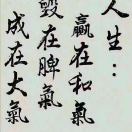 人生：
赢在和氣
毀在脾氣
成在大氣